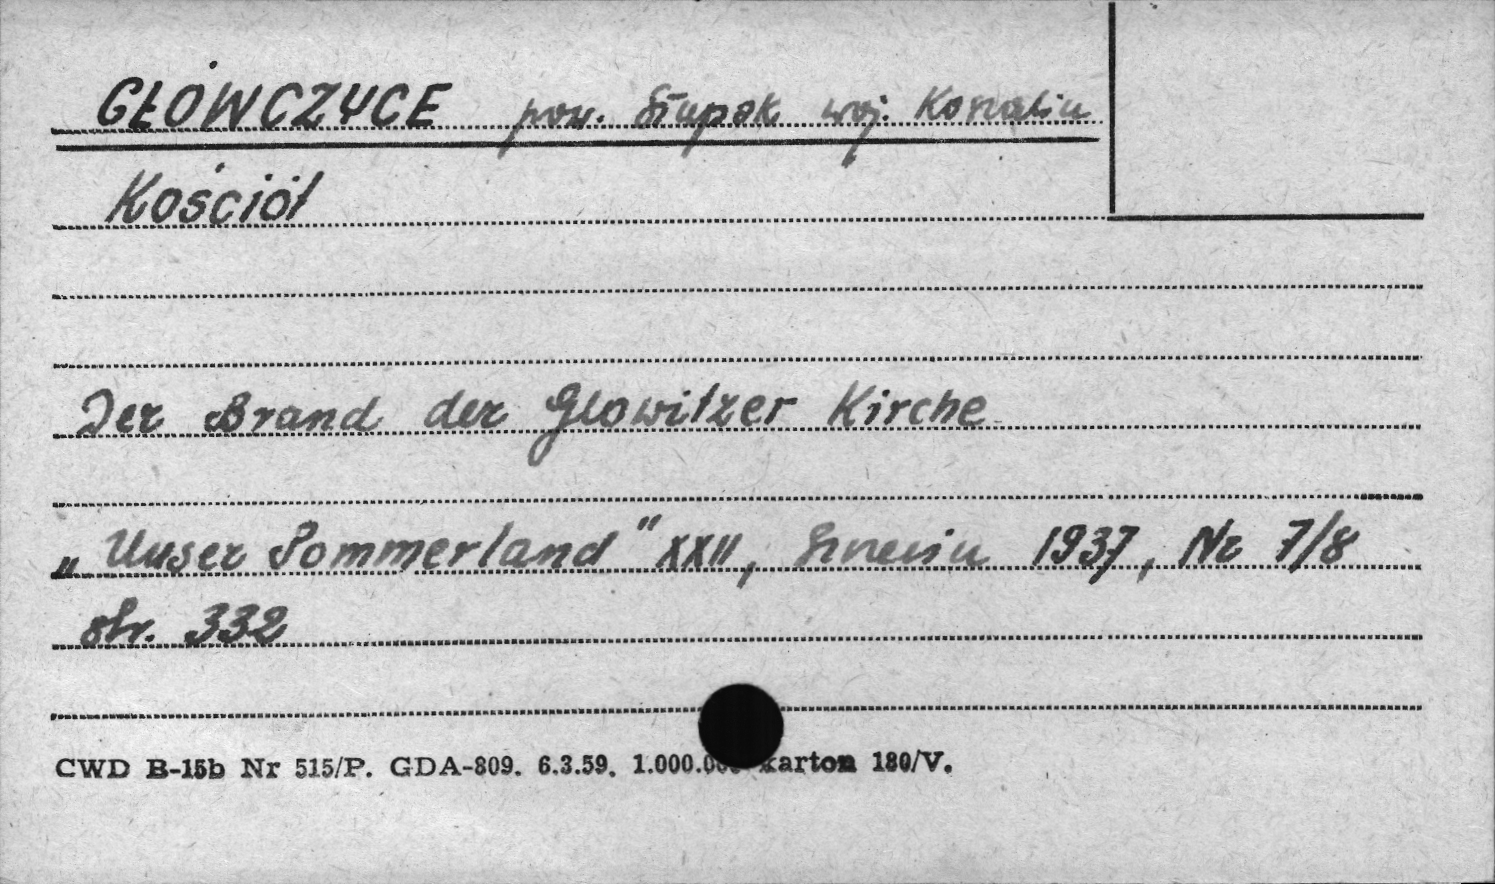 GŁÓWCZYCE pow. Słupsk woj. Koszalin
Kościół
Der Brand der Glowitzer Kirche
„Unser Pommerland" XXII, 1937, Nr 7/8
str. 332
CWD B-15b Nr 515/P. GDA-809. 6.3.59. 1.000.0 karton 180/V.